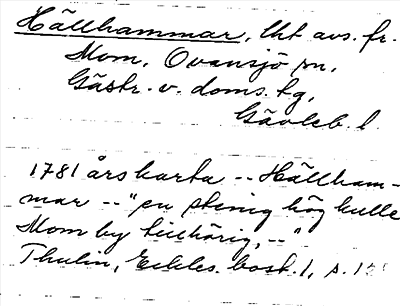 Hällhammar, lht avs. fr.
Mom, Ovansjö sn,
Gästr. v. doms. tg,
Gävleb. l.
1781 års karta -- Hällham-
mar -- "en stenig hög kulle
Mom by tillhörig, --"
Thulin, Eckles. bost. 1, s.